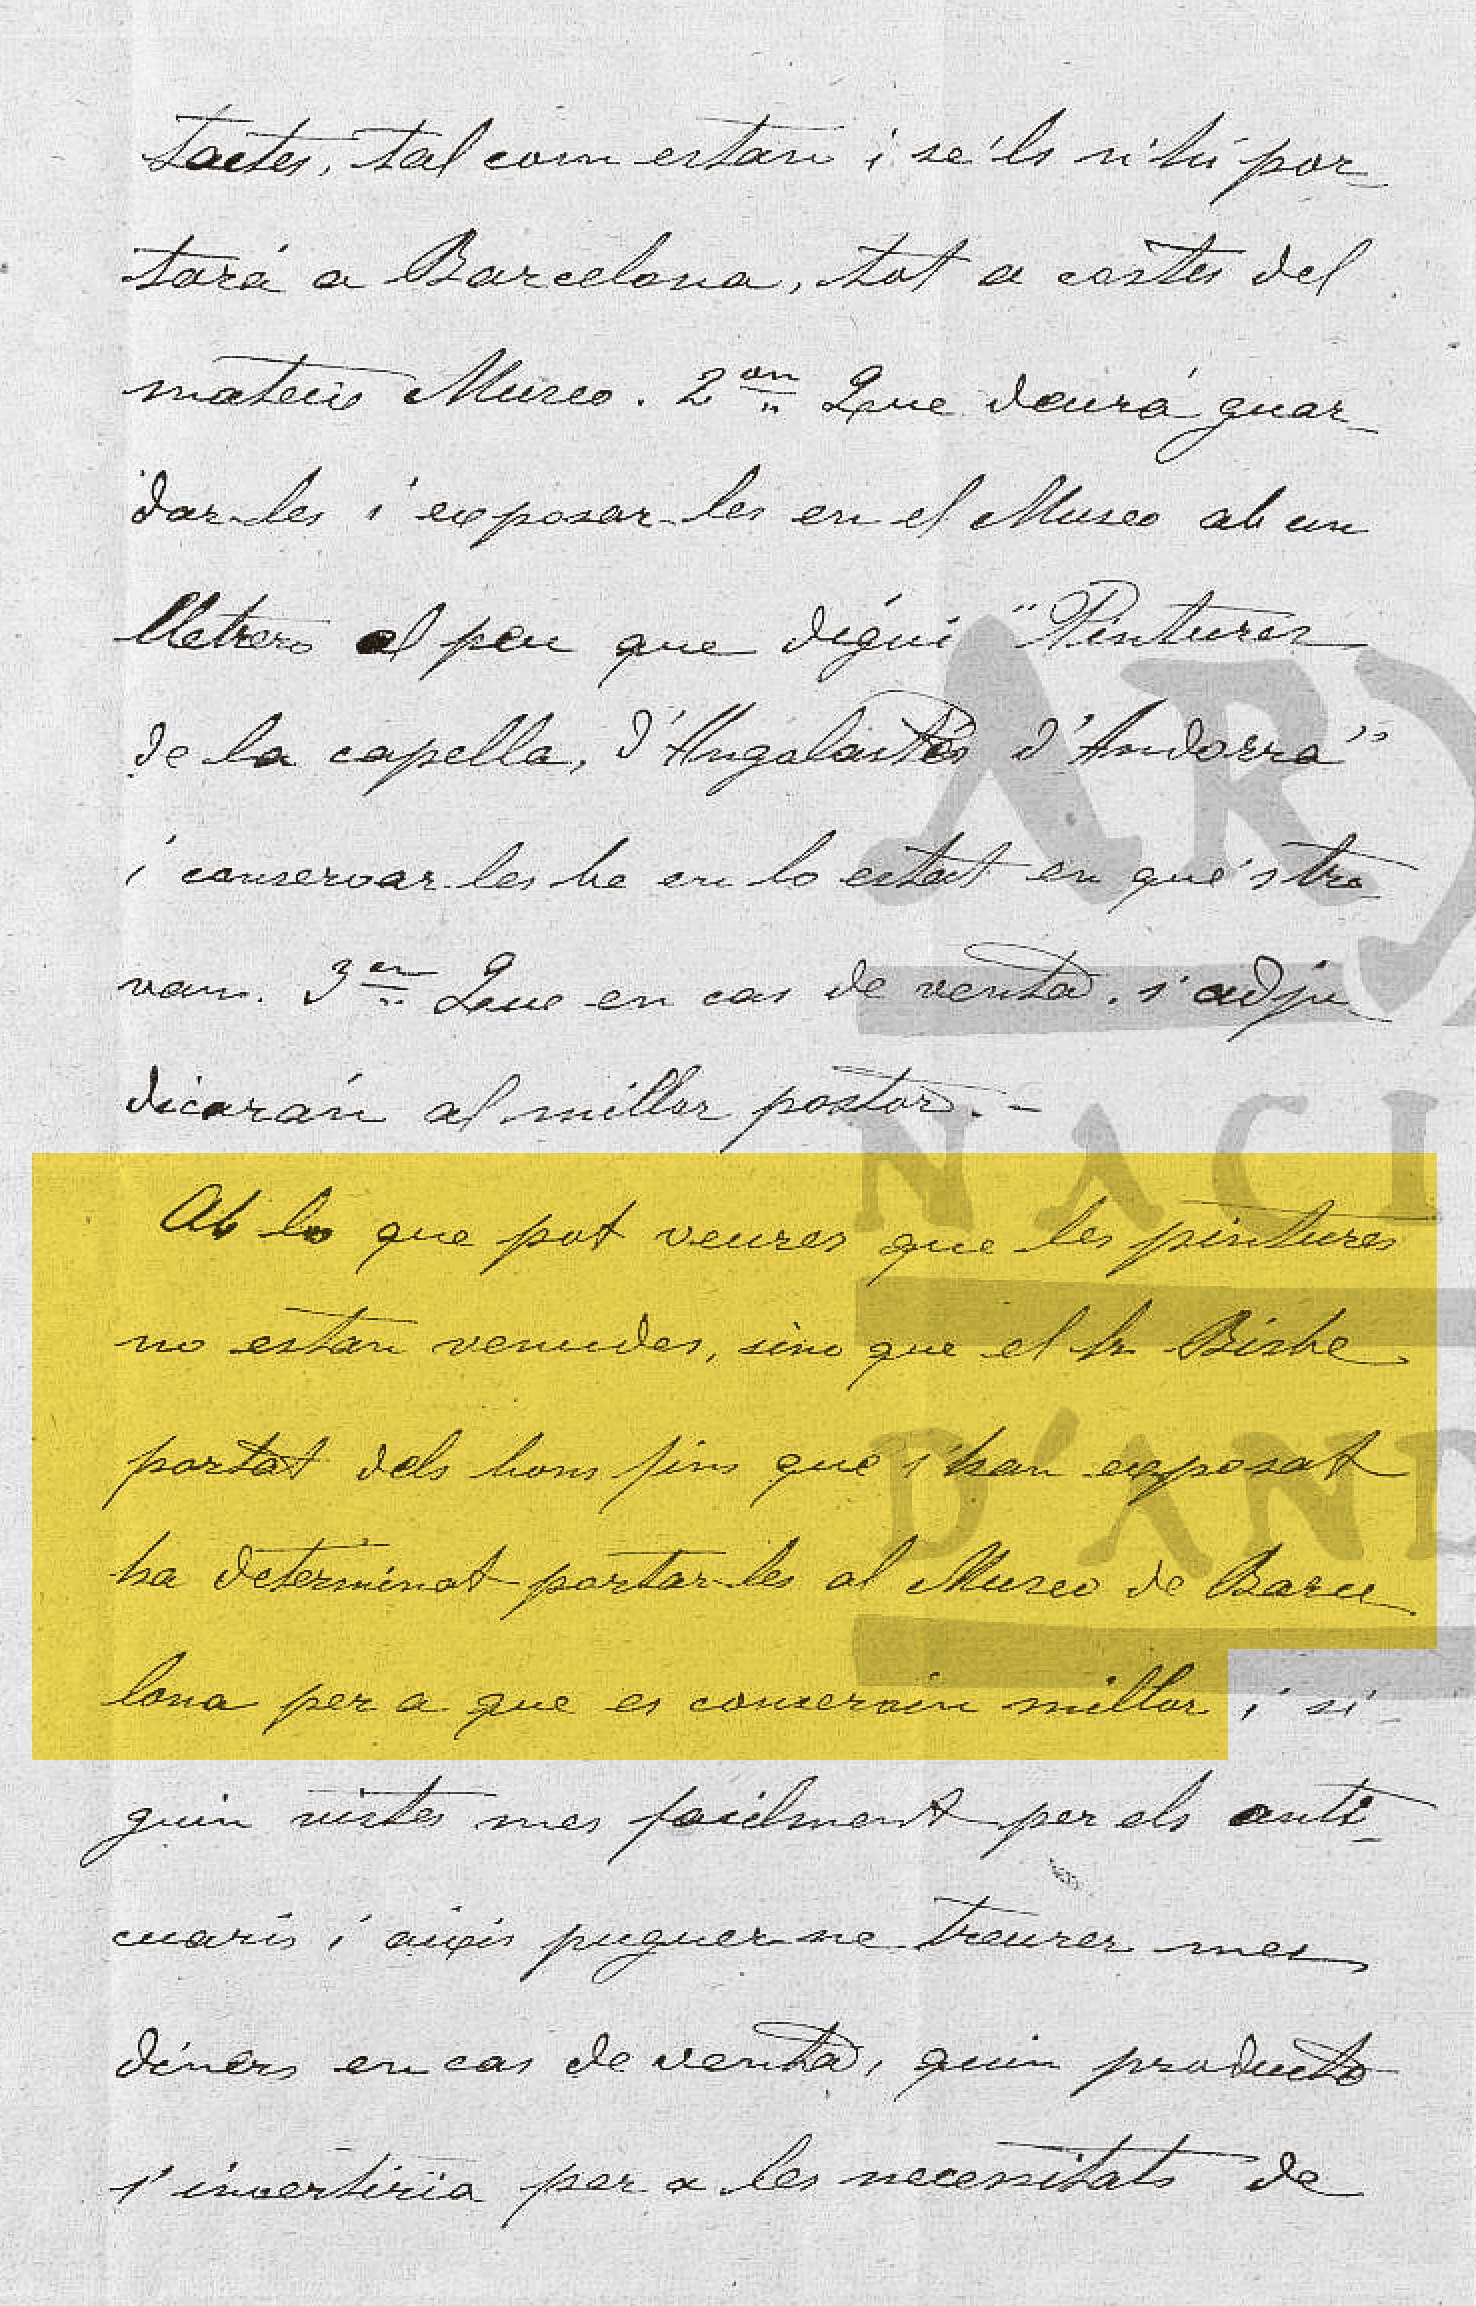 tactes, tal com estan i se'ls n'hi por-
tará a Barcelona, tot a costes del
mateix Museo. 2on Que deurá guar-
dar-les i exposar-les en el Museo ab un
lletrero al peu que digui "Pintures
de la capella, d'Angolastés d'Andorra"
i conservar-les be en lo estat en que's tro-
van. 3er Que en cas de venta, s'adju-
dicarán al millor postor. -
Ab lo que pot veures que les pintures
no estan venudes, sino que el Sr Bisbe
portat dels bons fins que s'han exposat
ha determinat portar-les al Museo de Barce-
lona per a que es conservin millor i si-
guin vistes mes facilment per els anti-
cuaris i aixis puguer-ne treurer mes
diners en cas de venta, quin producto
s'invertiria per a les necessitats de
ARX
NACI
D'AND